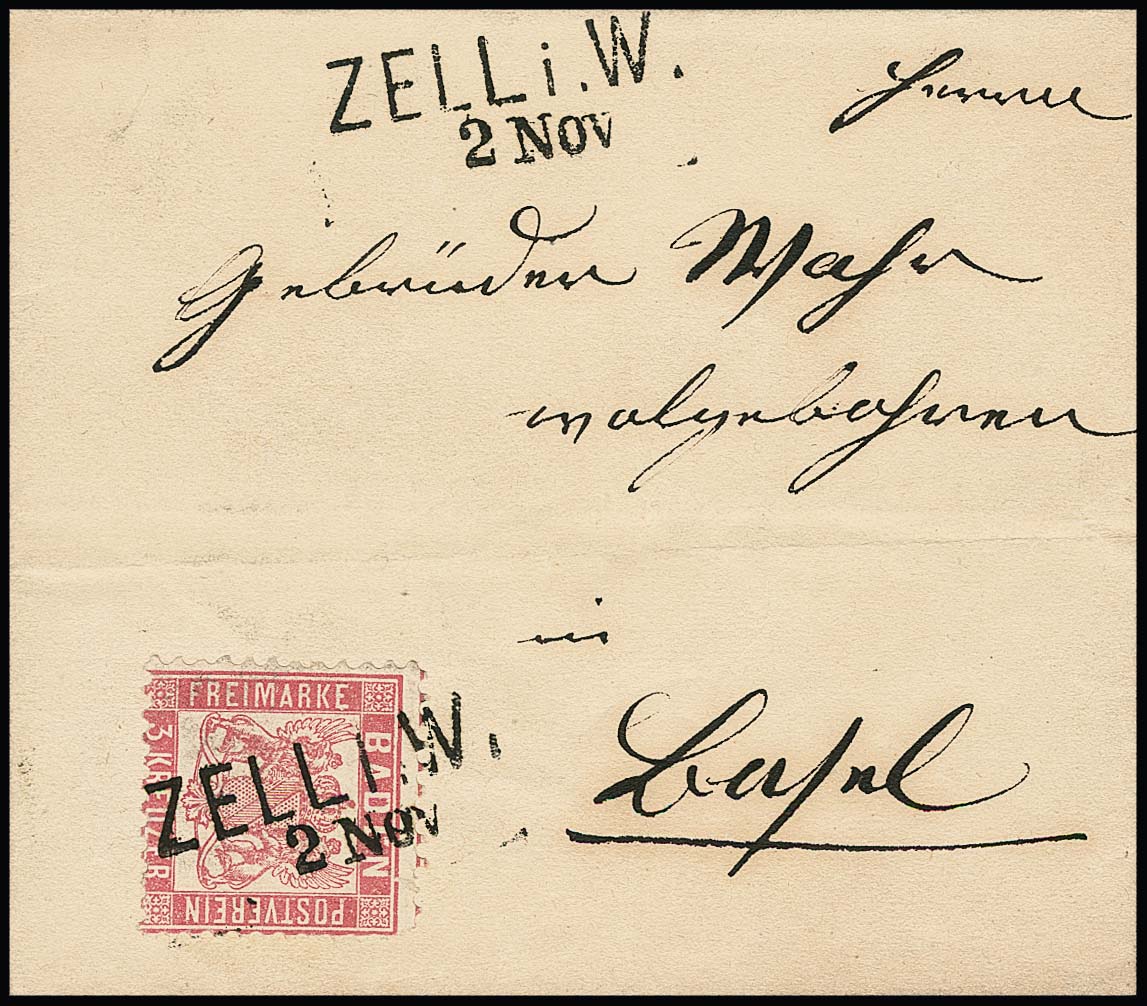 ZELL i. W.
2 NOV
Herrn
Gebrüder Wahr
wolgebohren
in
Basel
FREIMARKE
BADEN
3 KREUZER
POSTVEREIN
ZELL i. W.
2 NOV